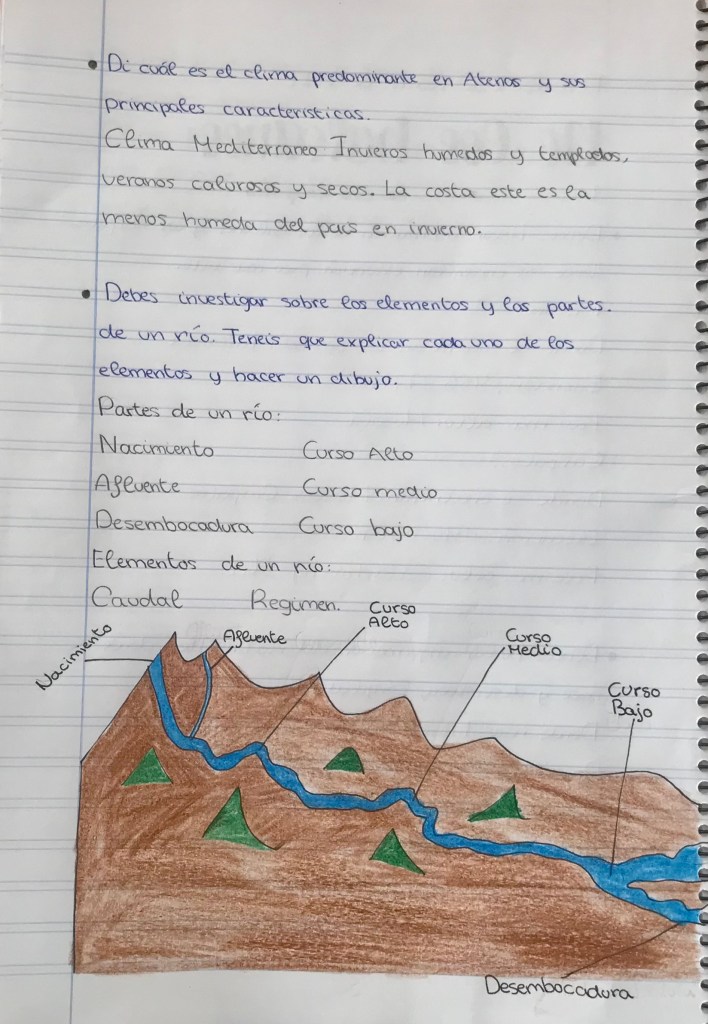 • Di cuál es el clima predominante en Atenas y sus
principales características.
Clima Mediterraneo Invieros humedos y templados,
veranos calurosos y secos. La costa este es la
menos humeda del pais en invierno.
• Debes investigar sobre los elementos y las partes.
de un río. Teneis que explicar cada uno de los
elementos y hacer un dibujo.
Partes de un río:
Nacimiento Curso Alto
Afluente Curso medio
Desembocadura Curso bajo
Elementos de un río:
Caudal Regimen.
Nacimiento
Afluente
Curso
Alto
Curso
Medio
Curso
Bajo
Desembocadura